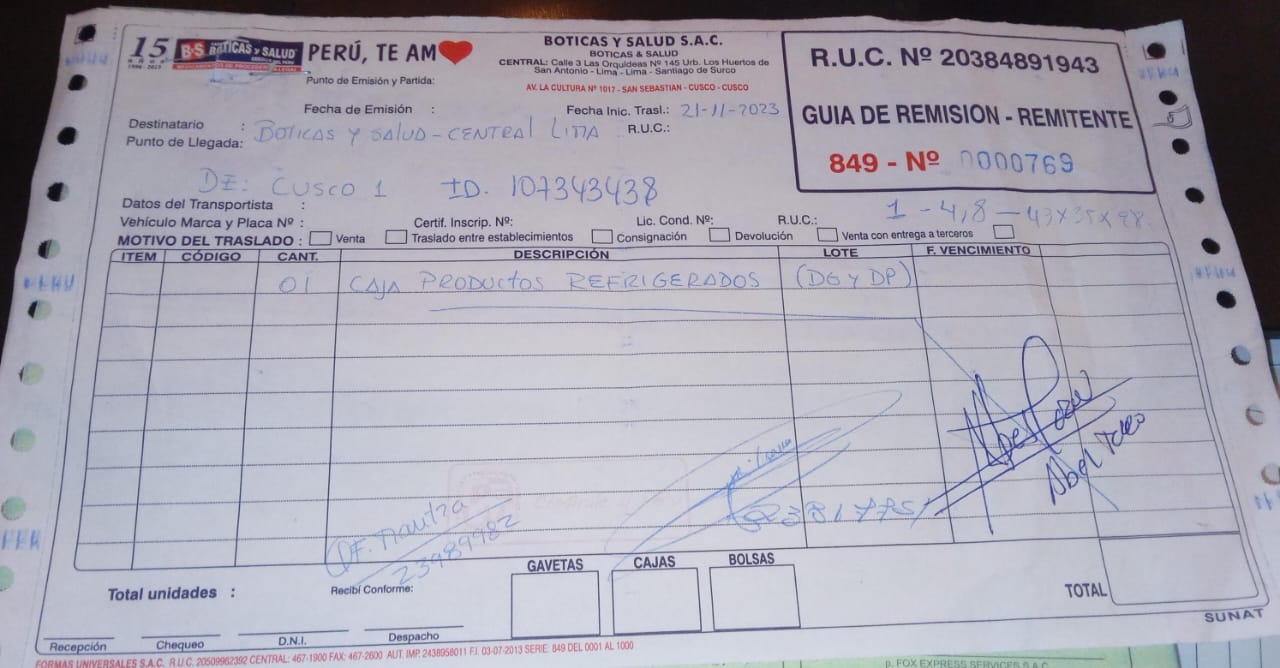 15 B·S BOTICAS Y SALUD PERÚ, TE AM
AÑOS
1998 - 2023
BOTICAS Y SALUD S.A.C.
BOTICAS & SALUD
CENTRAL: Calle 3 Las Orquideas Nº 145 Urb. Los Huertos de
San Antonio - Lima - Lima - Santiago de Surco
AV. LA CULTURA Nº 1017 - SAN SEBASTIAN - CUSCO - CUSCO
R.U.C. Nº 20384891943
GUIA DE REMISION - REMITENTE
849 - Nº 0000769
Punto de Emisión y Partida:
Fecha de Emisión :
Fecha Inic. Trasl.: 21-11-2023
Destinatario :
Punto de Llegada: BOTICAS Y SALUD - CENTRAL LIMA R.U.C.:
DE: CUSCO 1 ID. 107343438
Datos del Transportista :
Vehículo Marca y Placa Nº : Certif. Inscrip. Nº: Lic. Cond. Nº: R.U.C.: 1 - 4,8 - 43X35X98
MOTIVO DEL TRASLADO : Venta Traslado entre establecimientos Consignación Devolución Venta con entrega a terceros
ITEM CÓDIGO CANT. DESCRIPCIÓN LOTE F. VENCIMIENTO
01 CAJA PRODUCTOS REFRIGERADOS (DG Y DP)
Abel
23989982
Total unidades : Recibí Conforme: GAVETAS CAJAS BOLSAS TOTAL
Recepción Chequeo D.N.I. Despacho
SUNAT
FORMAS UNIVERSALES S.A.C. R.U.C. 20509962392 CENTRAL: 467-1900 FAX: 467-2600 AUT. IMP. 2438958011 F.I. 03-07-2013 SERIE: 849 DEL 0001 AL 1000
p. FOX EXPRESS SERVICES S.A.C.